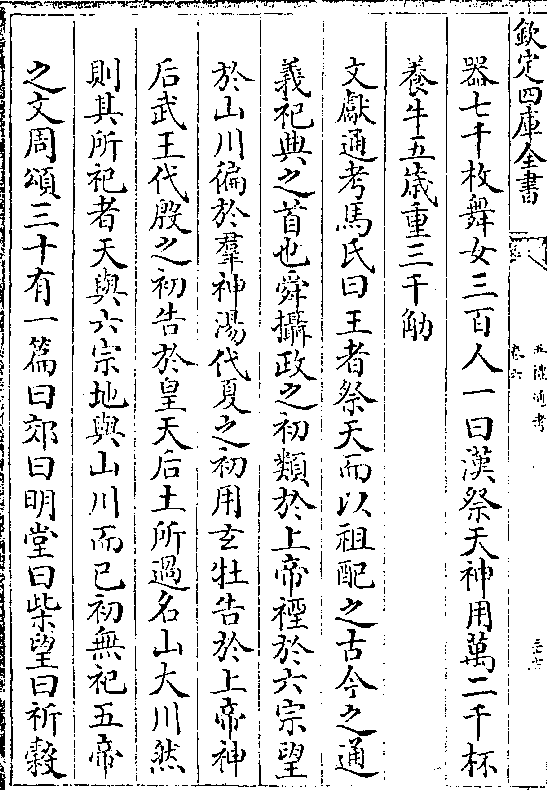 欽定四庫全書
五禮通考
卷六
器七千枚舞女三百人一曰漢祭天神用萬二千杯
養牛五歲重三千觔
文獻通考馬氏曰王者祭天而以祖配之古今之通
義祀典之首也舜攝政之初類於上帝禋於六宗望
於山川徧於羣神湯代夏之初用玄牡告於上帝神
后武王代殷之初告於皇天后土所過名山大川然
則其所祀者天與六宗地與山川而已初無祀五帝
之文周頌三十有一篇曰郊曰明堂曰柴望曰祈穀